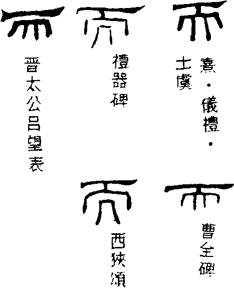 而
熹・儀禮・
士虞
而
禮器碑
而
晉太公呂望表
而
曹全碑
而
西狹頌